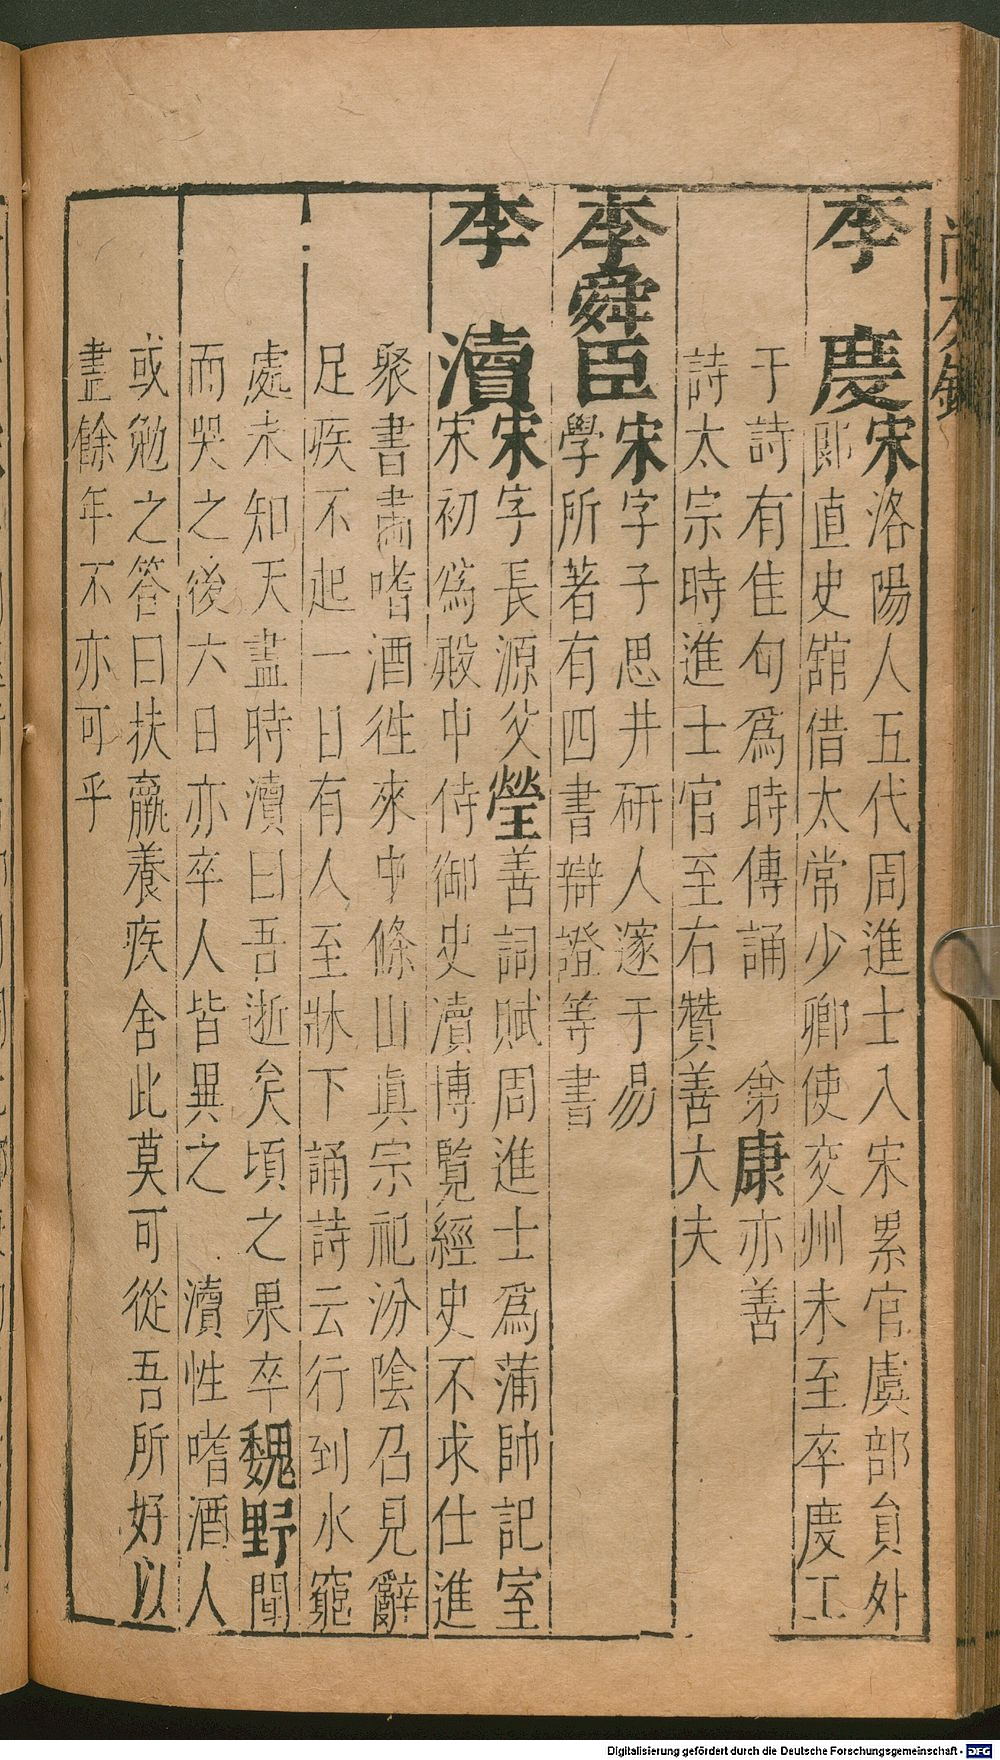 李慶宋洛陽人五代周進士入宋累官虞部員外
郎直史舘借太常少卿使交州未至卒慶工
于詩有佳句爲時傳誦　弟康亦善
詩太宗時進士官至右贊善大夫
李舜臣宋字子思井研人邃于易
學所著有四書辯證等書
李瀆宋字長源父瑩善詞賦周進士爲蒲帥記室
宋初爲殿中侍御史瀆博覽經史不求仕進
聚書畵嗜酒徃來中條山眞宗祀汾陰召見辭
足疾不起一日有人至牀下誦詩云行到水窮
處未知天盡時瀆曰吾逝矣頃之果卒魏野聞
而哭之後六日亦卒人皆異之　瀆性嗜酒人
或勉之答曰扶羸養疾舍此莫可從吾所好以
盡餘年不亦可乎
Digitalisierung gefördert durch die Deutsche Forschungsgemeinschaft - DFG